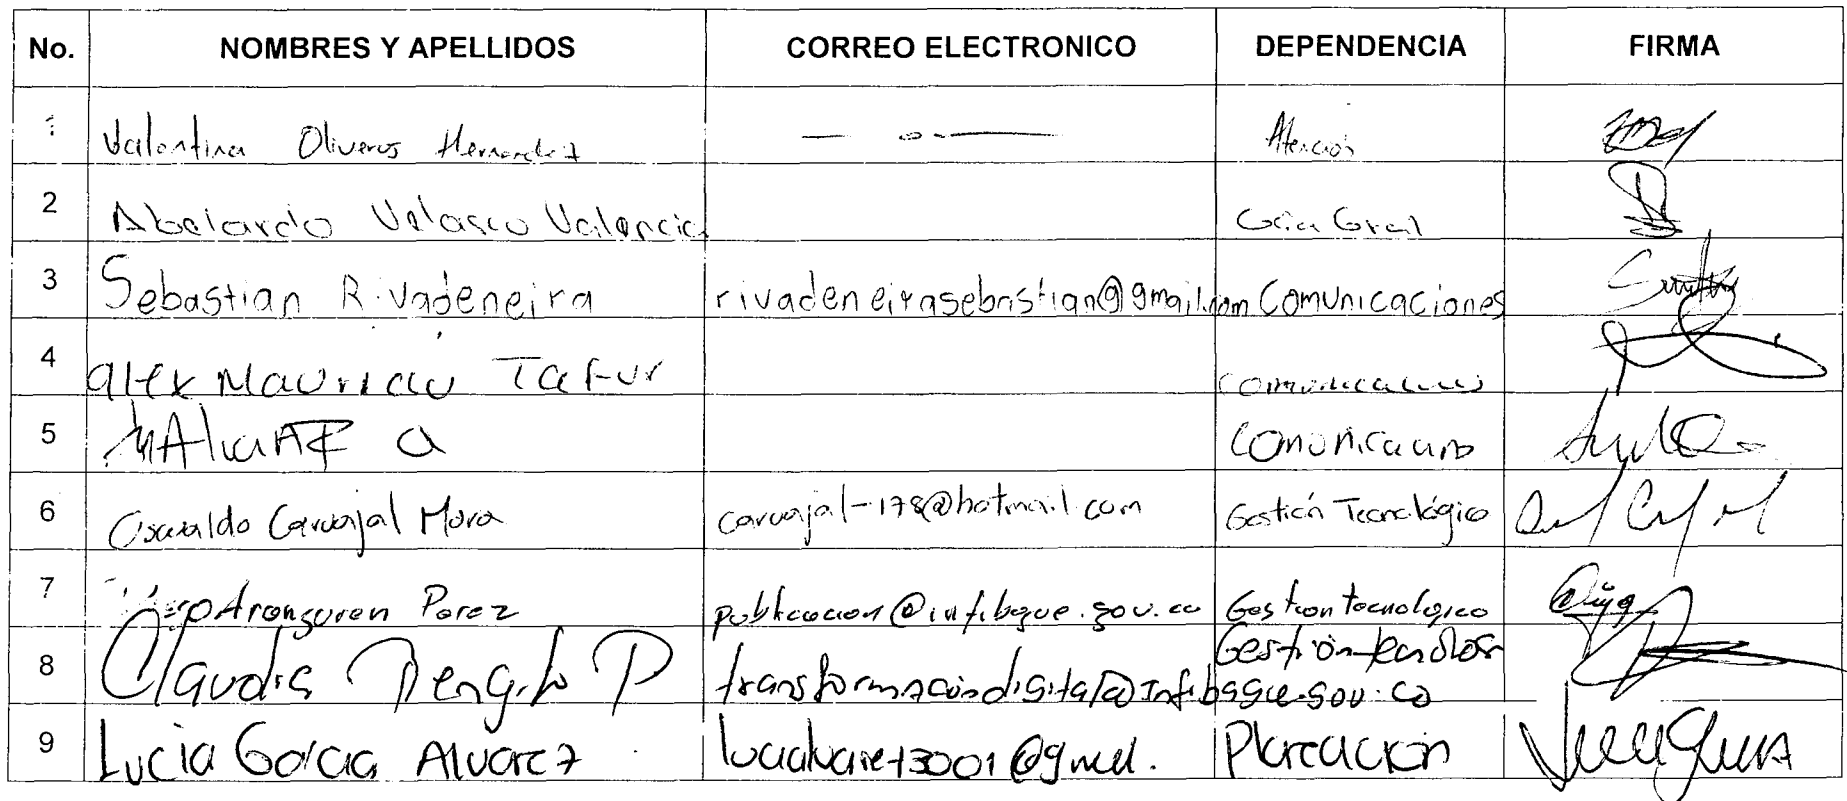 No. NOMBRES Y APELLIDOS CORREO ELECTRONICO DEPENDENCIA FIRMA
1 Valentina Oliveros Hernandez Atención
2 Abelardo Velasco Valencia Gcia Gral
3 Sebastian Rivadeneira rivadeneirasebastian@gmail.com Comunicaciones
4 alex Mauricio Tafur comunicaciones
5 Comunicacion
6 Oswaldo Carvajal Mora carvajal-178@hotmail.com Gestión Tecnológico
7 Aranguren Perez publicacion@infibague.gov.co Gestion tecnologico
8 Claudia Rengifo P transformaciondigital@Infibague.gov.co Gestión
9 Lucia Garcia Alvarez Planeación